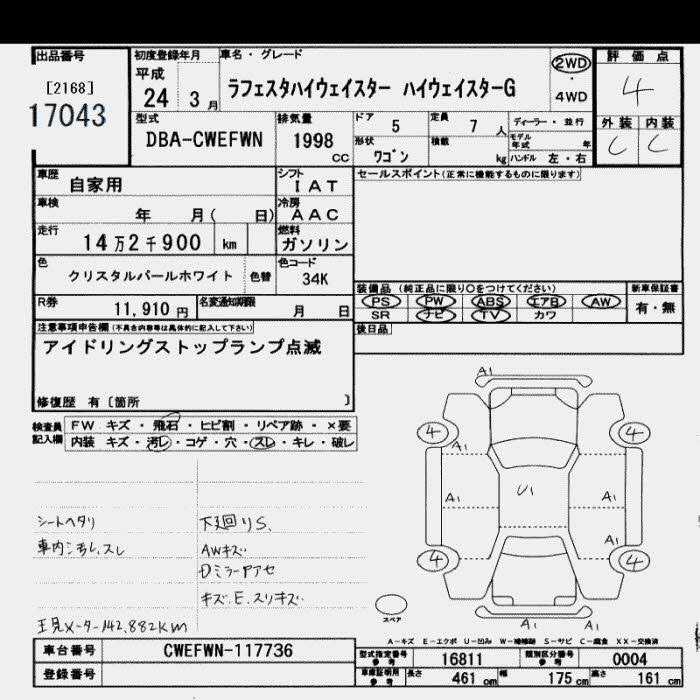 出品番号 初度登録年月 車名・グレード 評価点
[2168] 平成 2WD
17043 24 3月 ラフェスタハイウェイスター ハイウェイスターG ・ 4
4WD
型式 排気量 ドア 5 定員 7人 ディーラー・並行 外装 内装
DBA-CWEFWN 1998cc 形状 ワゴン 積載 kg モデル年式 年 C C
ハンドル 左・右
車歴 自家用 シフト IAT セールスポイント(正常に機能するものに限ります)
車検 年 月( 日) 冷房 AAC
走行 14万2千900 km 燃料 ガソリン
色 クリスタルパールホワイト 色替 色コード 34K
装備品 (純正品に限り○をつけてください) 新車保証書
R券 11,910円 名変通知期限 月 日 PS PW ABS エアB AW 有・無
SR ナビ TV カワ
注意事項申告欄(不具合内容等は具体的に記入して下さい) 後日品
アイドリングストップランプ点滅
修復歴 有〔箇所 〕
検査員記入欄 FW キズ・飛石・ヒビ割・リペア跡・×要
内装 キズ・汚レ・コゲ・穴・スレ・キレ・破レ
A1
4 4
A1
A1 U1 A1
A1
4 4
A1 A1
スペア
シートヘタリ 下廻りS.
車内汚レ、スレ AWキズ
DミラーPアセ
キズ.E.スリキズ
現メーター142,882km
A-キズ E-エクボ U-凹み W-補修跡 S-サビ C-腐食 XX-交換済
車台番号 CWEFWN-117736 型式指定番号参考 16811 類別区分番号参考 0004
登録番号 車庫証明用参考 長さ 461cm 幅 175cm 高さ 161cm